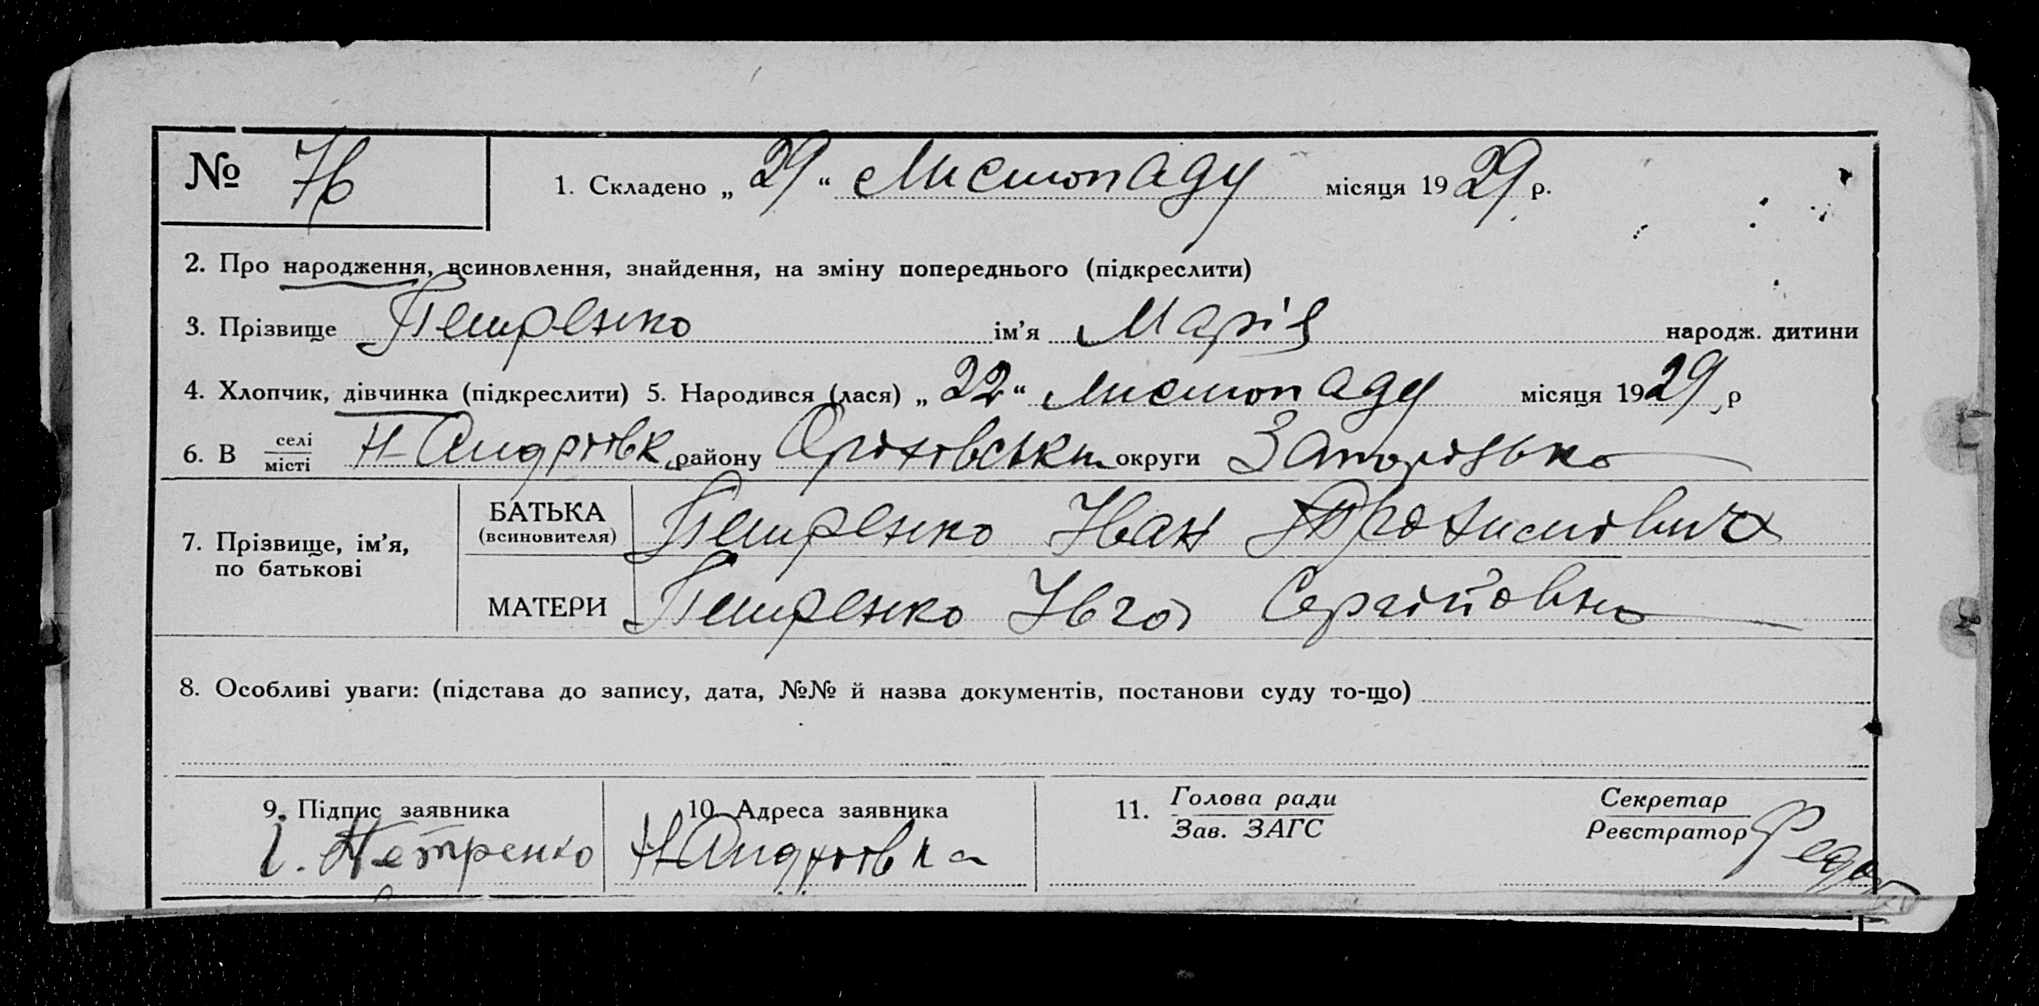 № 76 1. Складено „29“ Листопаду місяця 1929 р.
2. Про народження, всиновлення, знайдення, на зміну попереднього (підкреслити)
3. Прізвище Петренко ім’я Марія народж. дитини
4. Хлопчик, дівчинка (підкреслити) 5. Народився (лася) „22“ Листопаду місяця 1929 р
6. В селі
місті Н-Андріівк району Оріхівськи округи Запорізько
7. Прізвище, ім’я,
по батькові
БАТЬКА
(всиновителя) Петренко Іван
МАТЕРИ Петренко Івга Сергійовна
8. Особливі уваги: (підстава до запису, дата, №№ й назва документів, постанови суду то-що)
9. Підпис заявника 10. Адреса заявника 11. Голова ради
Зав. ЗАГС Секретар
Реєстратор
І. Петренко Н-Андріівка